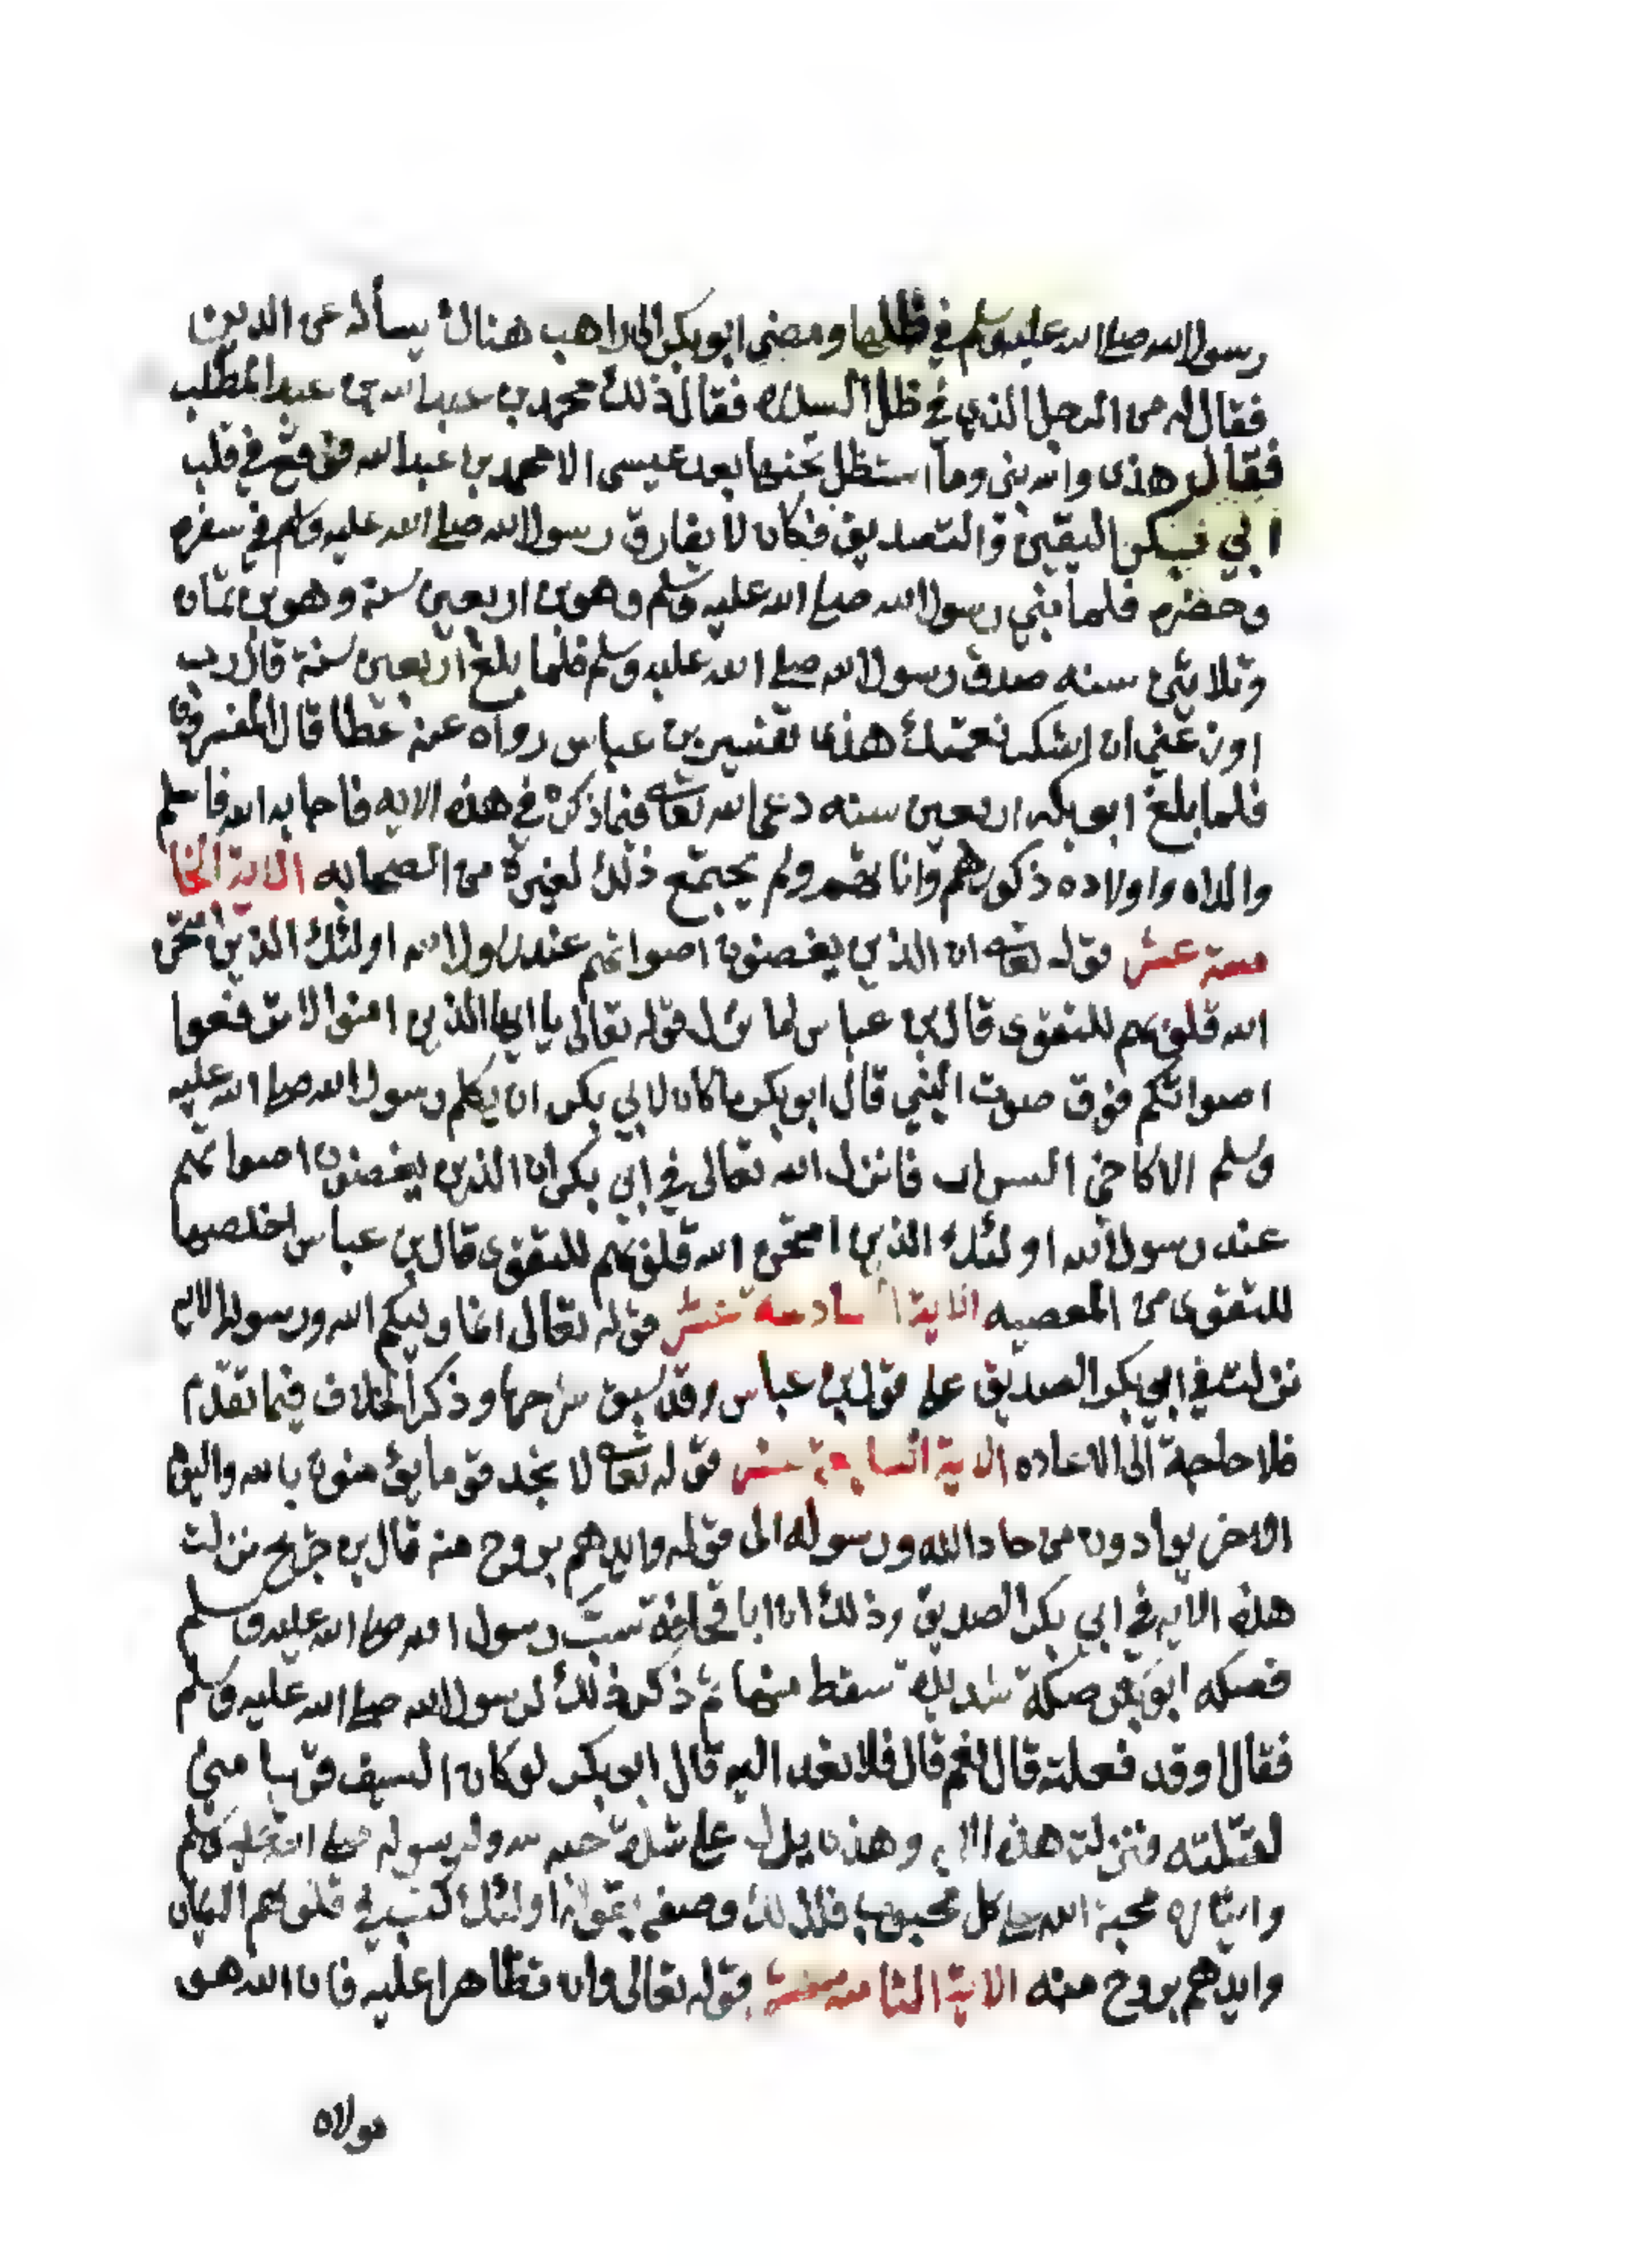 رسول الله صلى الله عليه وسلم في ظلها ومضى ابو بكر الى راهب هنالك يسأله عن الدين
فقال له من الرجل الذي في ظل السدره فقال ذلك محمد بن عبد الله بن عبد المطلب
فقال هذا والله نبي وما استظل تحتها بعد عيسى الا محمد بن عبد الله فوقع في قلب
ابي بكر اليقين والتصديق فكان لا يفارق رسول الله صلى الله عليه وسلم في سفره
وحضره فلما نبي رسول الله صلى الله عليه وسلم وهو بن اربعين سنة وهو بن ثمان
وثلاثين سنه صدق رسول الله صلى الله عليه وسلم فلما بلغ اربعين سنة قال رب
اوزعني ان اشكر نعمتك هذا تفسير بن عباس رواه عنه عطا قال المفسرون
فلما بلغ ابو بكر اربعين سنه دعى الله تعالى فيما ذكر في هذه الايه فاجابه الله فاسلم
والداه واولاده ذكورهم واناثهم ولم يجتمع ذلك لغيره من الصحابه الاية الخا
مسة عشر قوله تعالى ان الذين يغضون اصواتهم عند رسول الله اولئك الذين امتحن
الله قلوبهم للتقوى قال بن عباس لما نزل قوله تعالى يا ايها الذين امنوا لا ترفعوا
اصواتكم فوق صوت النبي قال ابو بكر ما كان لابي بكر ان يكلم رسول الله صلى الله عليه
وسلم الا كاخي السرار فانزل الله تعالى في ابي بكر ان الذين يغضون اصواتهم
عند رسول الله اولئك الذين امتحن الله قلوبهم للتقوى قال بن عباس اخلصها
للتقوى من المعصيه الاية السادسة عشر قوله تعالى انما وليكم الله ورسوله الايه
نزلت في ابي بكر الصديق على قول بن عباس وقد سبق شرحها وذكر الخلاف فيما تقدم
فلا حاجة الى الاعاده الاية السابعة عشر قوله تعالى لا تجد قوما يؤمنون بالله واليوم
الاخر يوادون من حاد الله ورسوله الى قوله وايدهم بروح منه قال بن جريج نزلت
هذه الايه في ابي بكر الصديق وذلك ان ابا قحافة سب رسول الله صلى الله عليه وسلم
فصكه ابو بكر صكة شديدة سقط منها ثم ذكر ذلك لرسول الله صلى الله عليه وسلم
فقال او قد فعلته قال نعم قال فلا تعد اليه قال ابو بكر لو كان السيف قريبا مني
لقتلته فنزلت هذه الايه وهذا يدل على شدة حبه لله ولرسوله صلى الله عليه وسلم
وايثاره محبة الله على كل محبوب فلذلك وصفه بقوله اولئك كتب في قلوبهم الايمان
وايدهم بروح منه الاية الثامنة عشر قوله تعالى وان تظاهرا عليه فان الله هو
مولاه